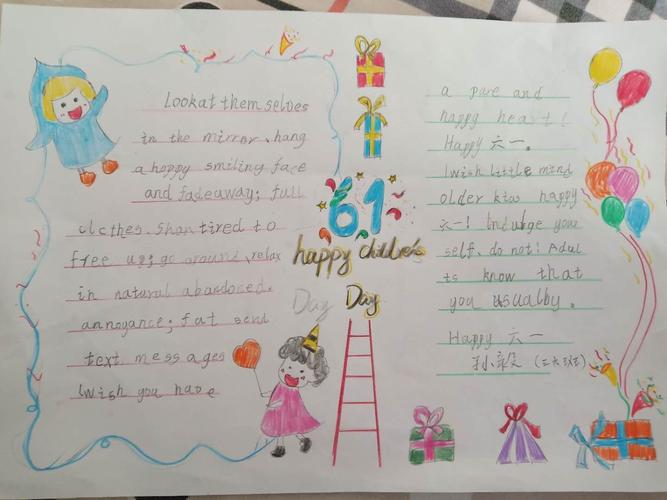 Look at them selves
in the mirror、hang
a happy smiling face
and fadeaway; full
clothes. Shan tired to
free us; go around、relax
in natural abandoned.
annoyance; fat send
text messages
I wish you have
61
happy children's
Day Day
a pure and
happy heart!
Happy 六一.
I wish little mind
older kiss happy
六一! Indulge your
self、do not! Adul
ts know that
you usualby.
Happy 六一
孙毅（三大班）